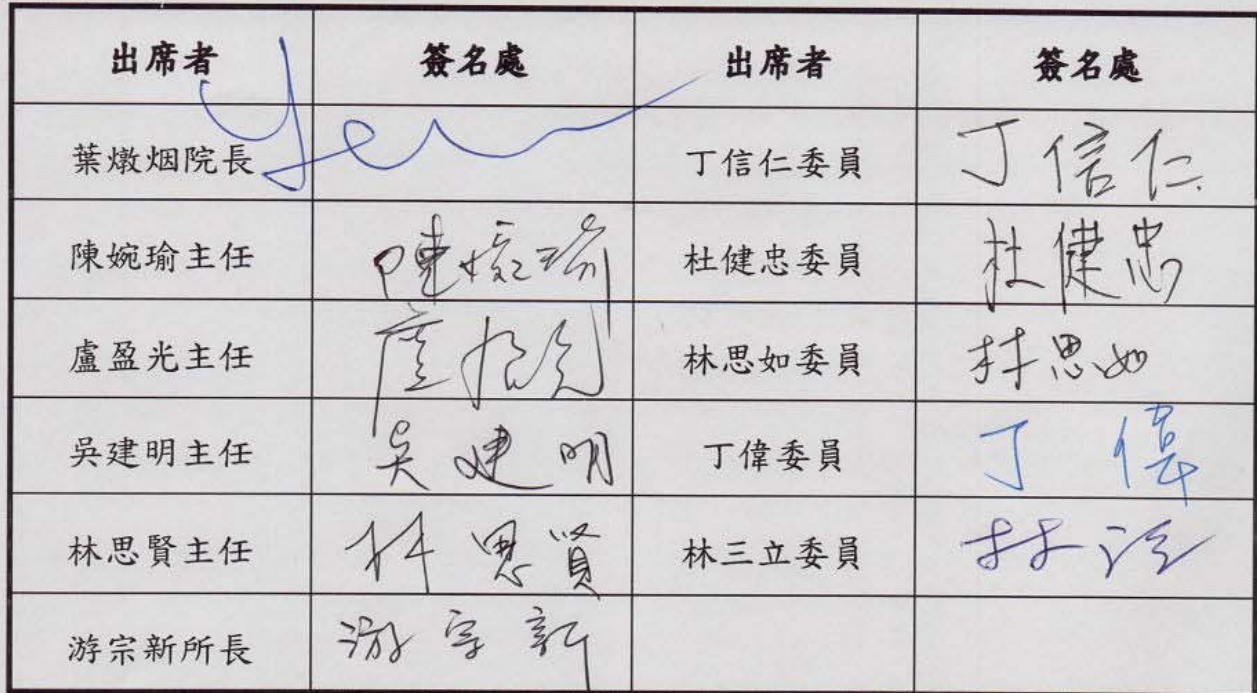 出席者 簽名處 出席者 簽名處
葉燉烟院長 Yen 丁信仁委員 丁信仁
陳婉瑜主任 陳婉瑜 杜健忠委員 杜健忠
盧盈光主任 林思如委員 林思如
吳建明主任 吳建明 丁偉委員 丁偉
林思賢主任 林思賢 林三立委員 林
游宗新所長 游宗新